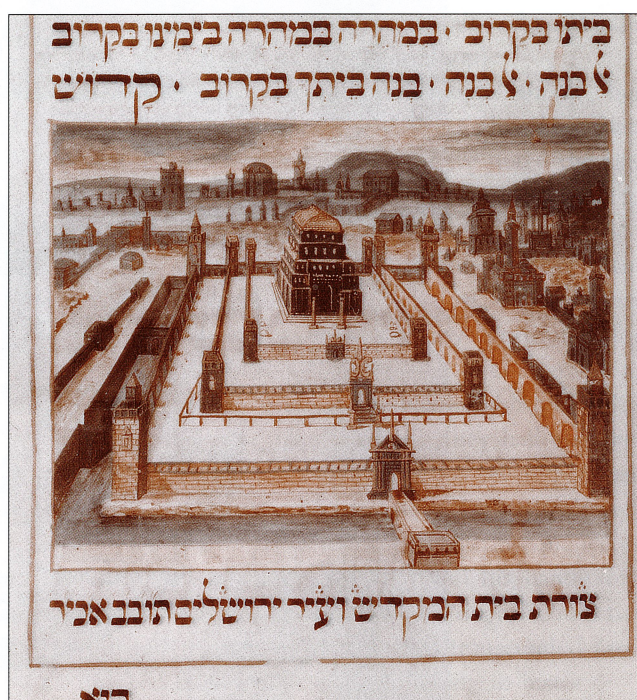 ביתו בקרוב · במהרה במהרה בימינו בקרוב
ﭏ בנה · ﭏ בנה · בנה ביתך בקרוב · קדוש
צורת בית המקדש ועיר ירושלים תובב אכיר
הוא